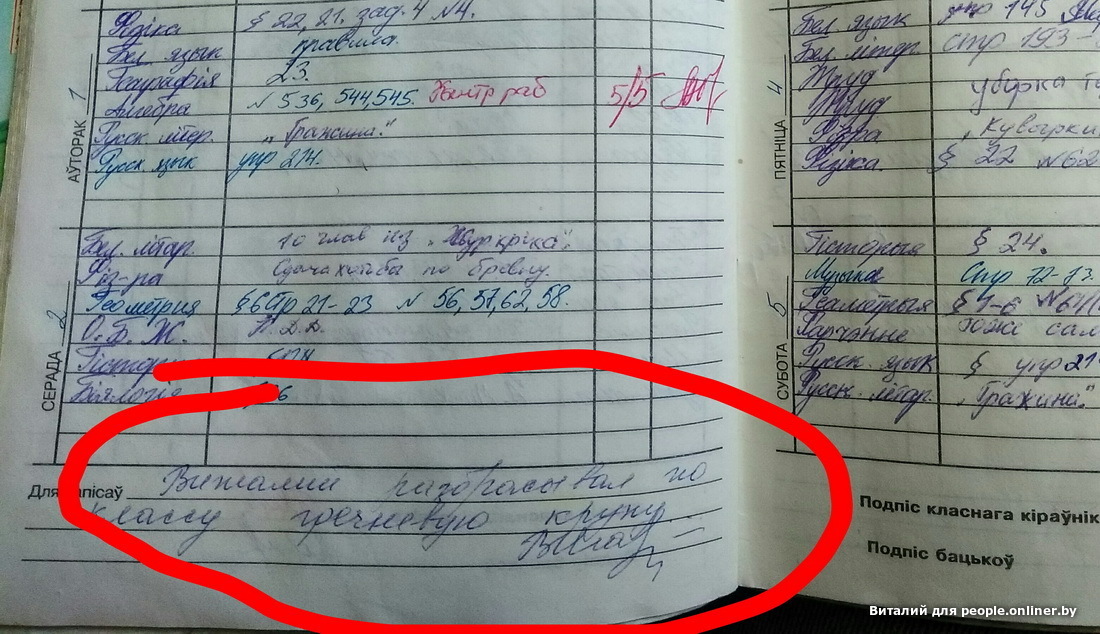 Фізіка § 22, 21. зад. 4 №4.
Бел. язык правила.
Геаграфія 23.
Алгебра № 536, 544, 545. Контр раб 5/5
Русск. літер. „Гражина."
Русск. язык упр 214.
АЎТОРАК 1
Бел. літар. 10 глав из
Фіз-ра по бревну.
Геометрия § 6 стр 21-23 № 56, 57, 62, 58.
О.Б.Ж. П.Д.Д.
Біялогія
СЕРАДА 2
Для запісаў Виталий разбрасывал по
классу гречневую крупу.
Бел. язык упр 145
Бел. літар. стр 193-
Труд уборка
Труд
Фізра „Кувырки
Фізіка. § 22 №62
ПЯТНІЦА 4
Гісторыя § 24.
Музыка Стр 72-73.
Геаметрыя §
Чарчэнне
Русск. язык § упр 21
Русск. літар. „Гражина."
СУБОТА 5
Подпіс класнага кіраўнік
Подпіс бацькоў
Виталий для people.onliner.by